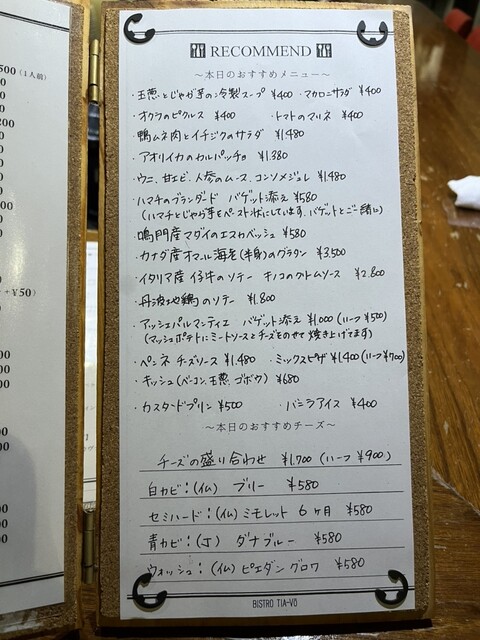 RECOMMEND
～本日のおすすめメニュー～
・玉葱とじゃが芋の冷製スープ ¥400 ・マカロニサラダ ¥400
・オクラのピクルス ¥400 ・トマトのマリネ ¥400
・鴨ムネ肉とイチジクのサラダ ¥1480
・アオリイカのカルパッチョ ¥1.380
・ウニ、甘エビ、人参のムース、コンソメジュレ ¥1.480
・ハマチのブランダード バゲット添え ¥580
(ハマチとじゃが芋をペースト状にしています、バゲットとご一緒に)
・鳴門産マダイのエスカベッシュ ¥580
・カナダ産オマール海老(半身)のグラタン ¥3,500
・イタリア産 仔牛のソテー キノコのクリームソース ¥2.800
・丹波地鶏のソテー ¥1.800
・アッシェパルマンティエ バゲット添え ¥1,000 (ハーフ ¥500)
(マッシュポテトにミートソースとチーズをのせて焼き上げてます)
・ペンネ チーズソース ¥1.480 ・ミックスピザ ¥1400 (ハーフ ¥700)
・キッシュ (ベーコン、玉葱、ゴボウ) ¥680
・カスタードプリン ¥500 ・バニラアイス ¥400
～本日のおすすめチーズ～
チーズの盛り合わせ ¥1,700 (ハーフ ¥900)
白カビ：(仏) ブリー ¥580
セミハード：(仏) ミモレット 6ヶ月 ¥580
青カビ：(丁) ダナブルー ¥580
ウォッシュ：(仏) ピエダングロワ ¥580
BISTRO TIA-VO
500 (1人前)
+¥50)